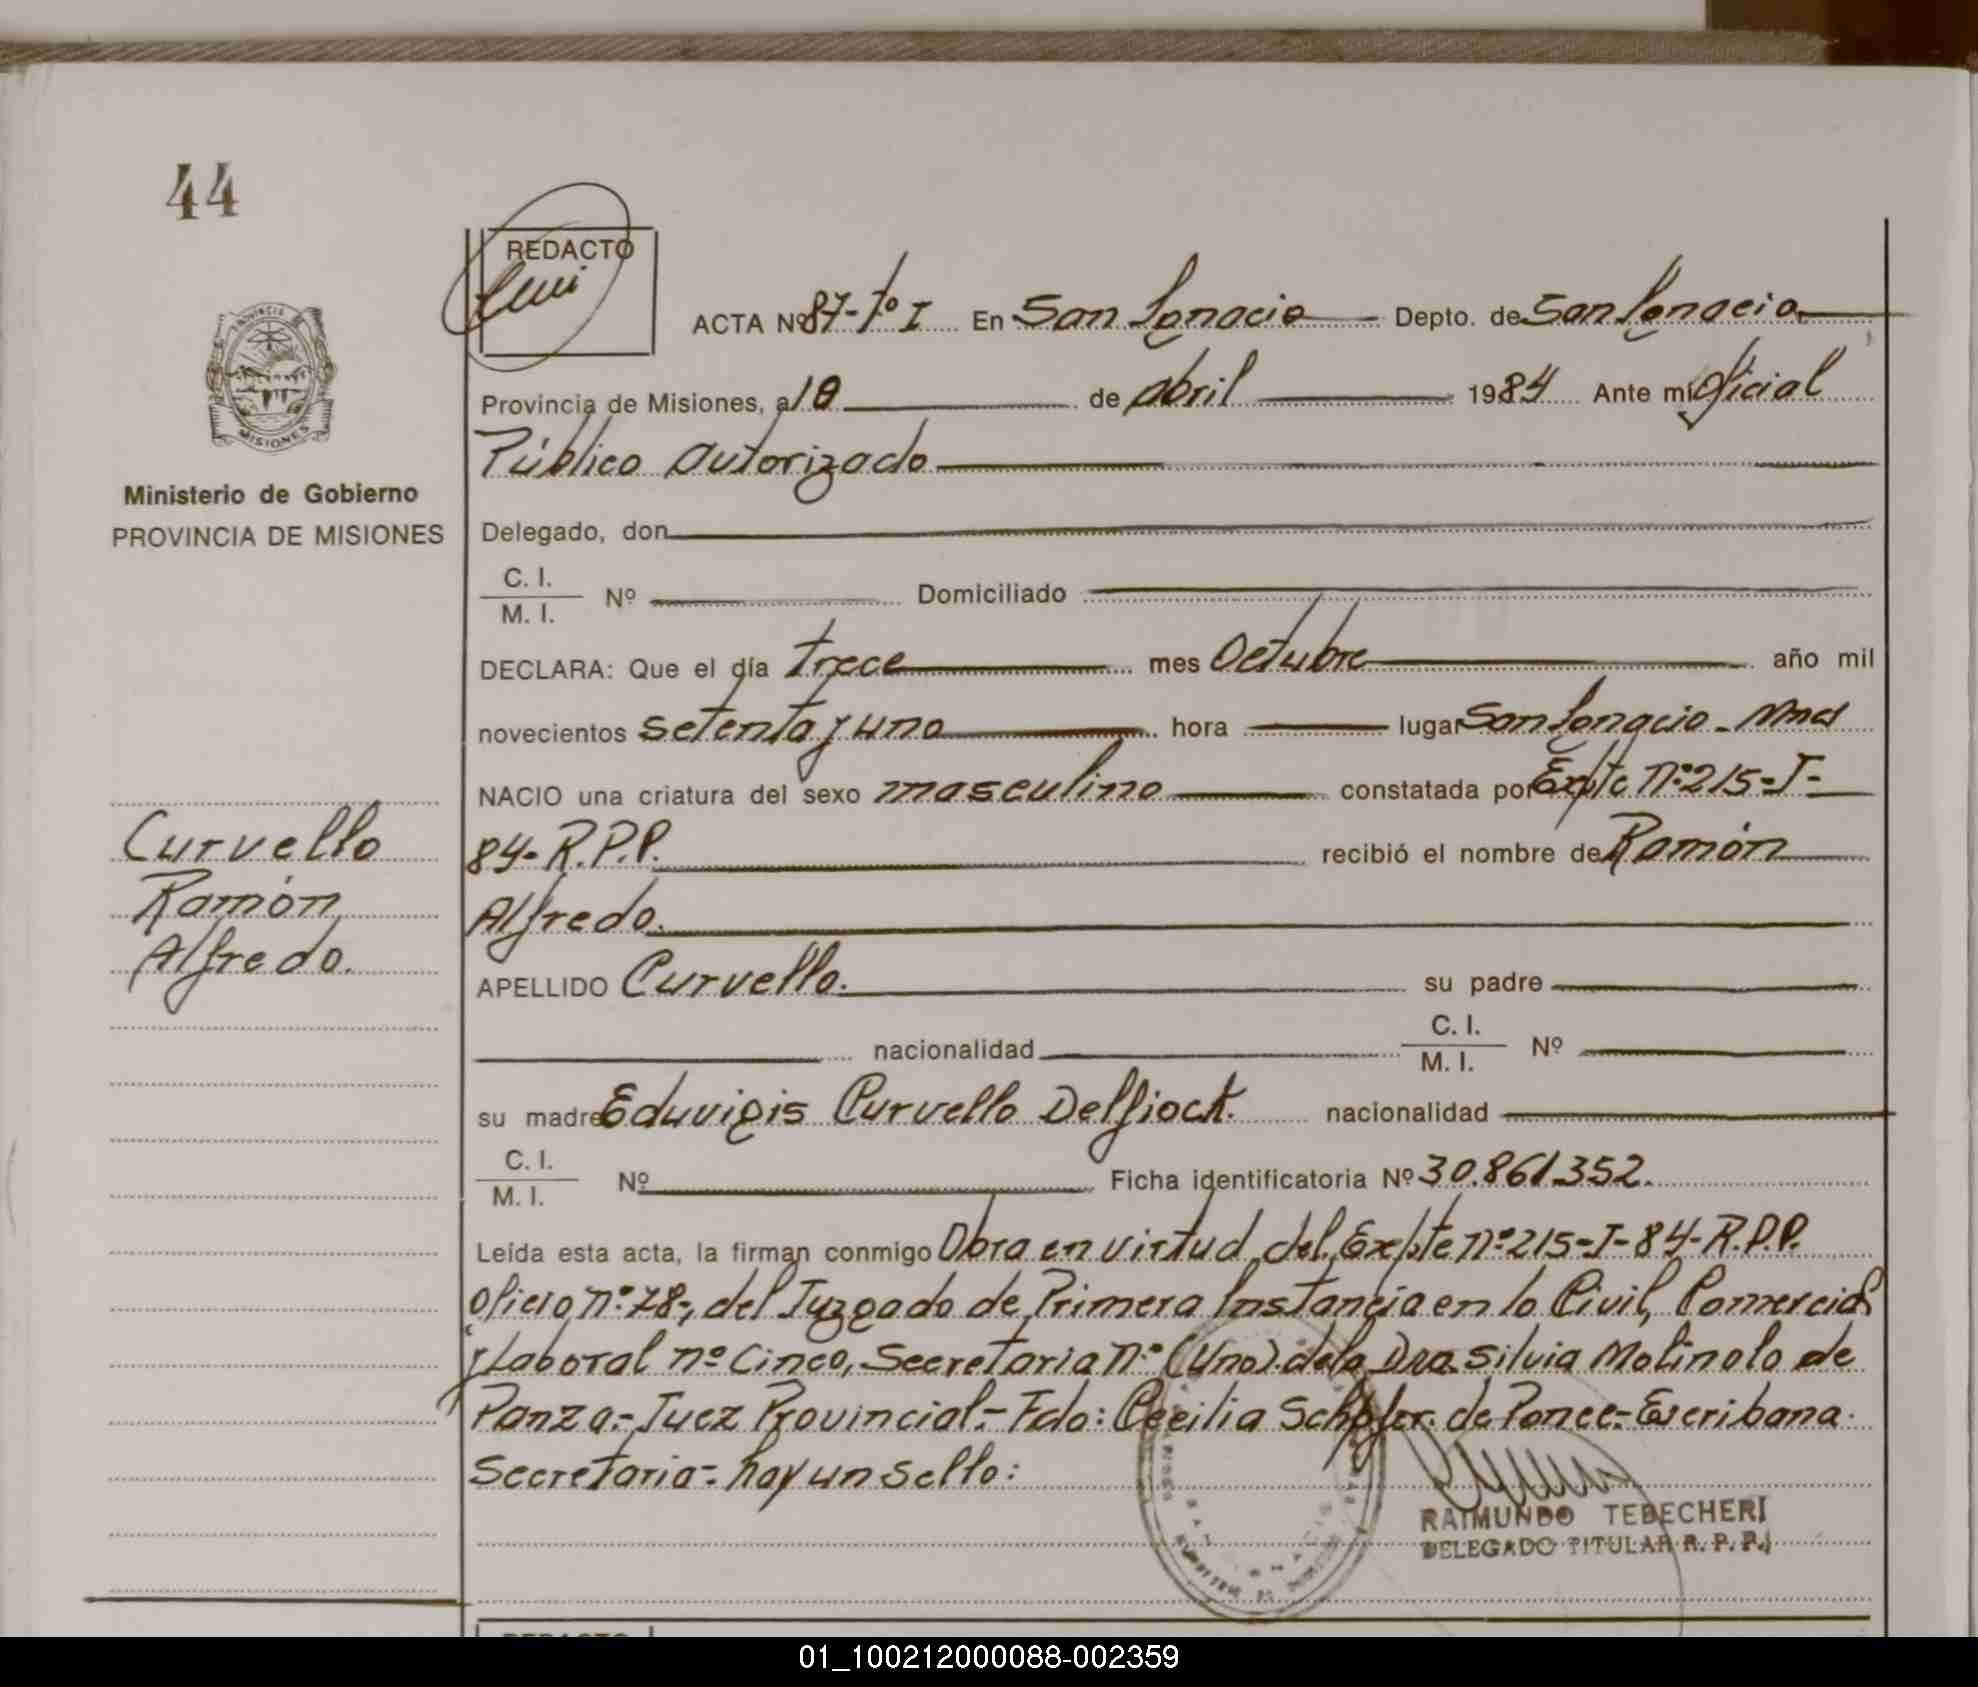 44
REDACTO
ACTA Nº 87-Tº I En San Ignacio Depto. de San Ignacio
Provincia de Misiones, a 18 de abril 1984 Ante mi Oficial
Público autorizado
Delegado, don
C. I.
M. I. Nº Domiciliado
DECLARA: Que el día trece mes Octubre año mil
novecientos setenta y uno hora lugar San Ignacio - Mnes
NACIO una criatura del sexo masculino constatada por Expte Nº 215-I-
84-R.P.P. recibió el nombre de Ramón
Alfredo.
APELLIDO Curvello. su padre
nacionalidad C. I.
M. I. Nº
su madre Eduvigis Curvello Delfiock. nacionalidad
C. I.
M. I. Nº Ficha identificatoria Nº 30.861.352.
Leída esta acta, la firman conmigo Obra en virtud del Expte nº 215-I-84-R.P.P.
Oficio nº 78-, del Juzgado de Primera Instancia en lo Civil, Comercial
y Laboral nº Cinco, Secretaria nº (Uno) de la Dra. Silvia Molinolo de
Panza.- Juez Provincial.- Fdo: Cecilia de Ponce.- Escribana
Secretaria.- hay un sello:
RAIMUNDO TEBECHERI
DELEGADO TITULAR R. P. P.
PROVINCIA
MISIONES
Ministerio de Gobierno
PROVINCIA DE MISIONES
Curvello
Ramón
Alfredo.
REDACTO
01_100212000088-002359